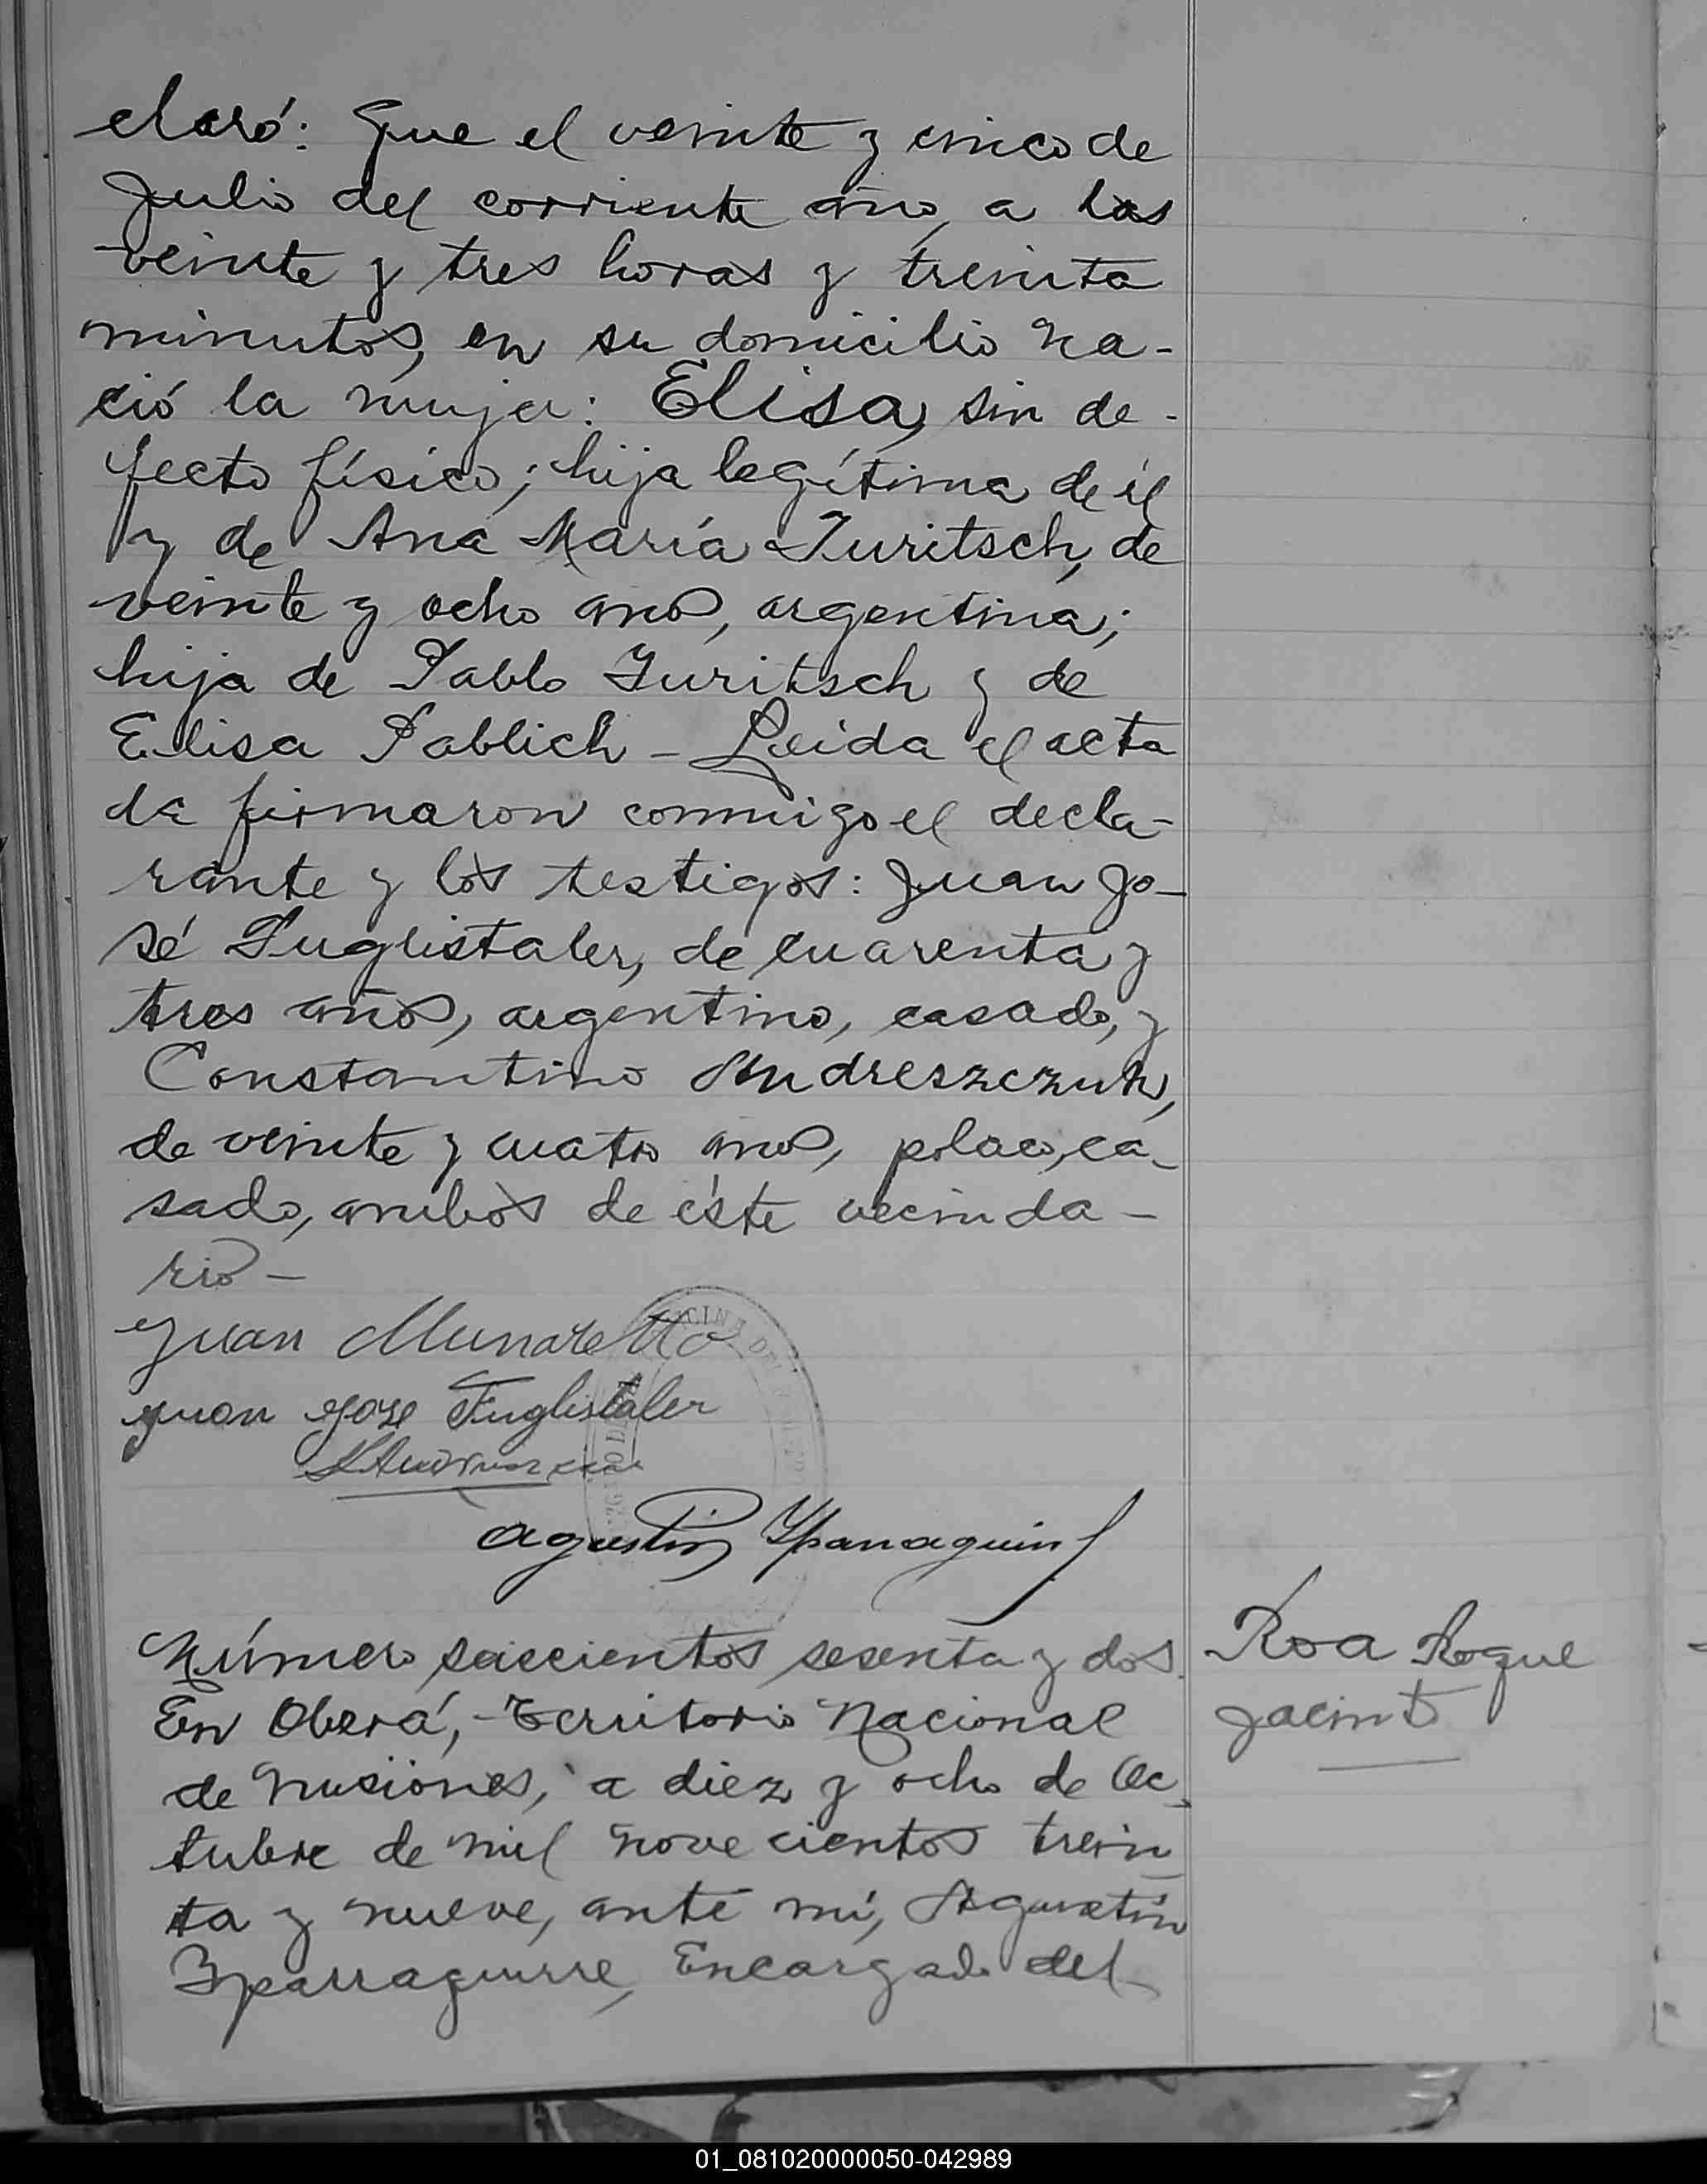 claró: Que el veinte y cinco de
Julio del corriente año, a las
veinte y tres horas y treinta
minutos, en su domicilio na-
ció la mujer: Elisa, sin de-
fecto físico; hija legítima de él
y de Ana María Juritsch, de
veinte y ocho años, argentina;
hija de Pablo Juritsch y de
Elisa Pablich - Leida el acta
la firmaron conmigo el decla-
rante y los testigos: Juan Jo-
sé Fuglistaler, de cuarenta y
tres años, argentino, casado, y
Constantino Andreszczuk,
de veinte y cuatro años, polaco, ca-
sado, ambos de éste vecinda-
rio -
Juan Munaretto
Juan Jose Fuglistaler
Agustin Yparraguirre
Número seiscientos sesenta y dos.
En Oberá, Territorio Nacional
de Misiones, a diez y ocho de Oc-
tubre de mil novecientos trein-
ta y nueve, ante mí, Agustín
Yparraguirre, Encargado del
Roa Roque
Jacinto
01_081020000050-042989